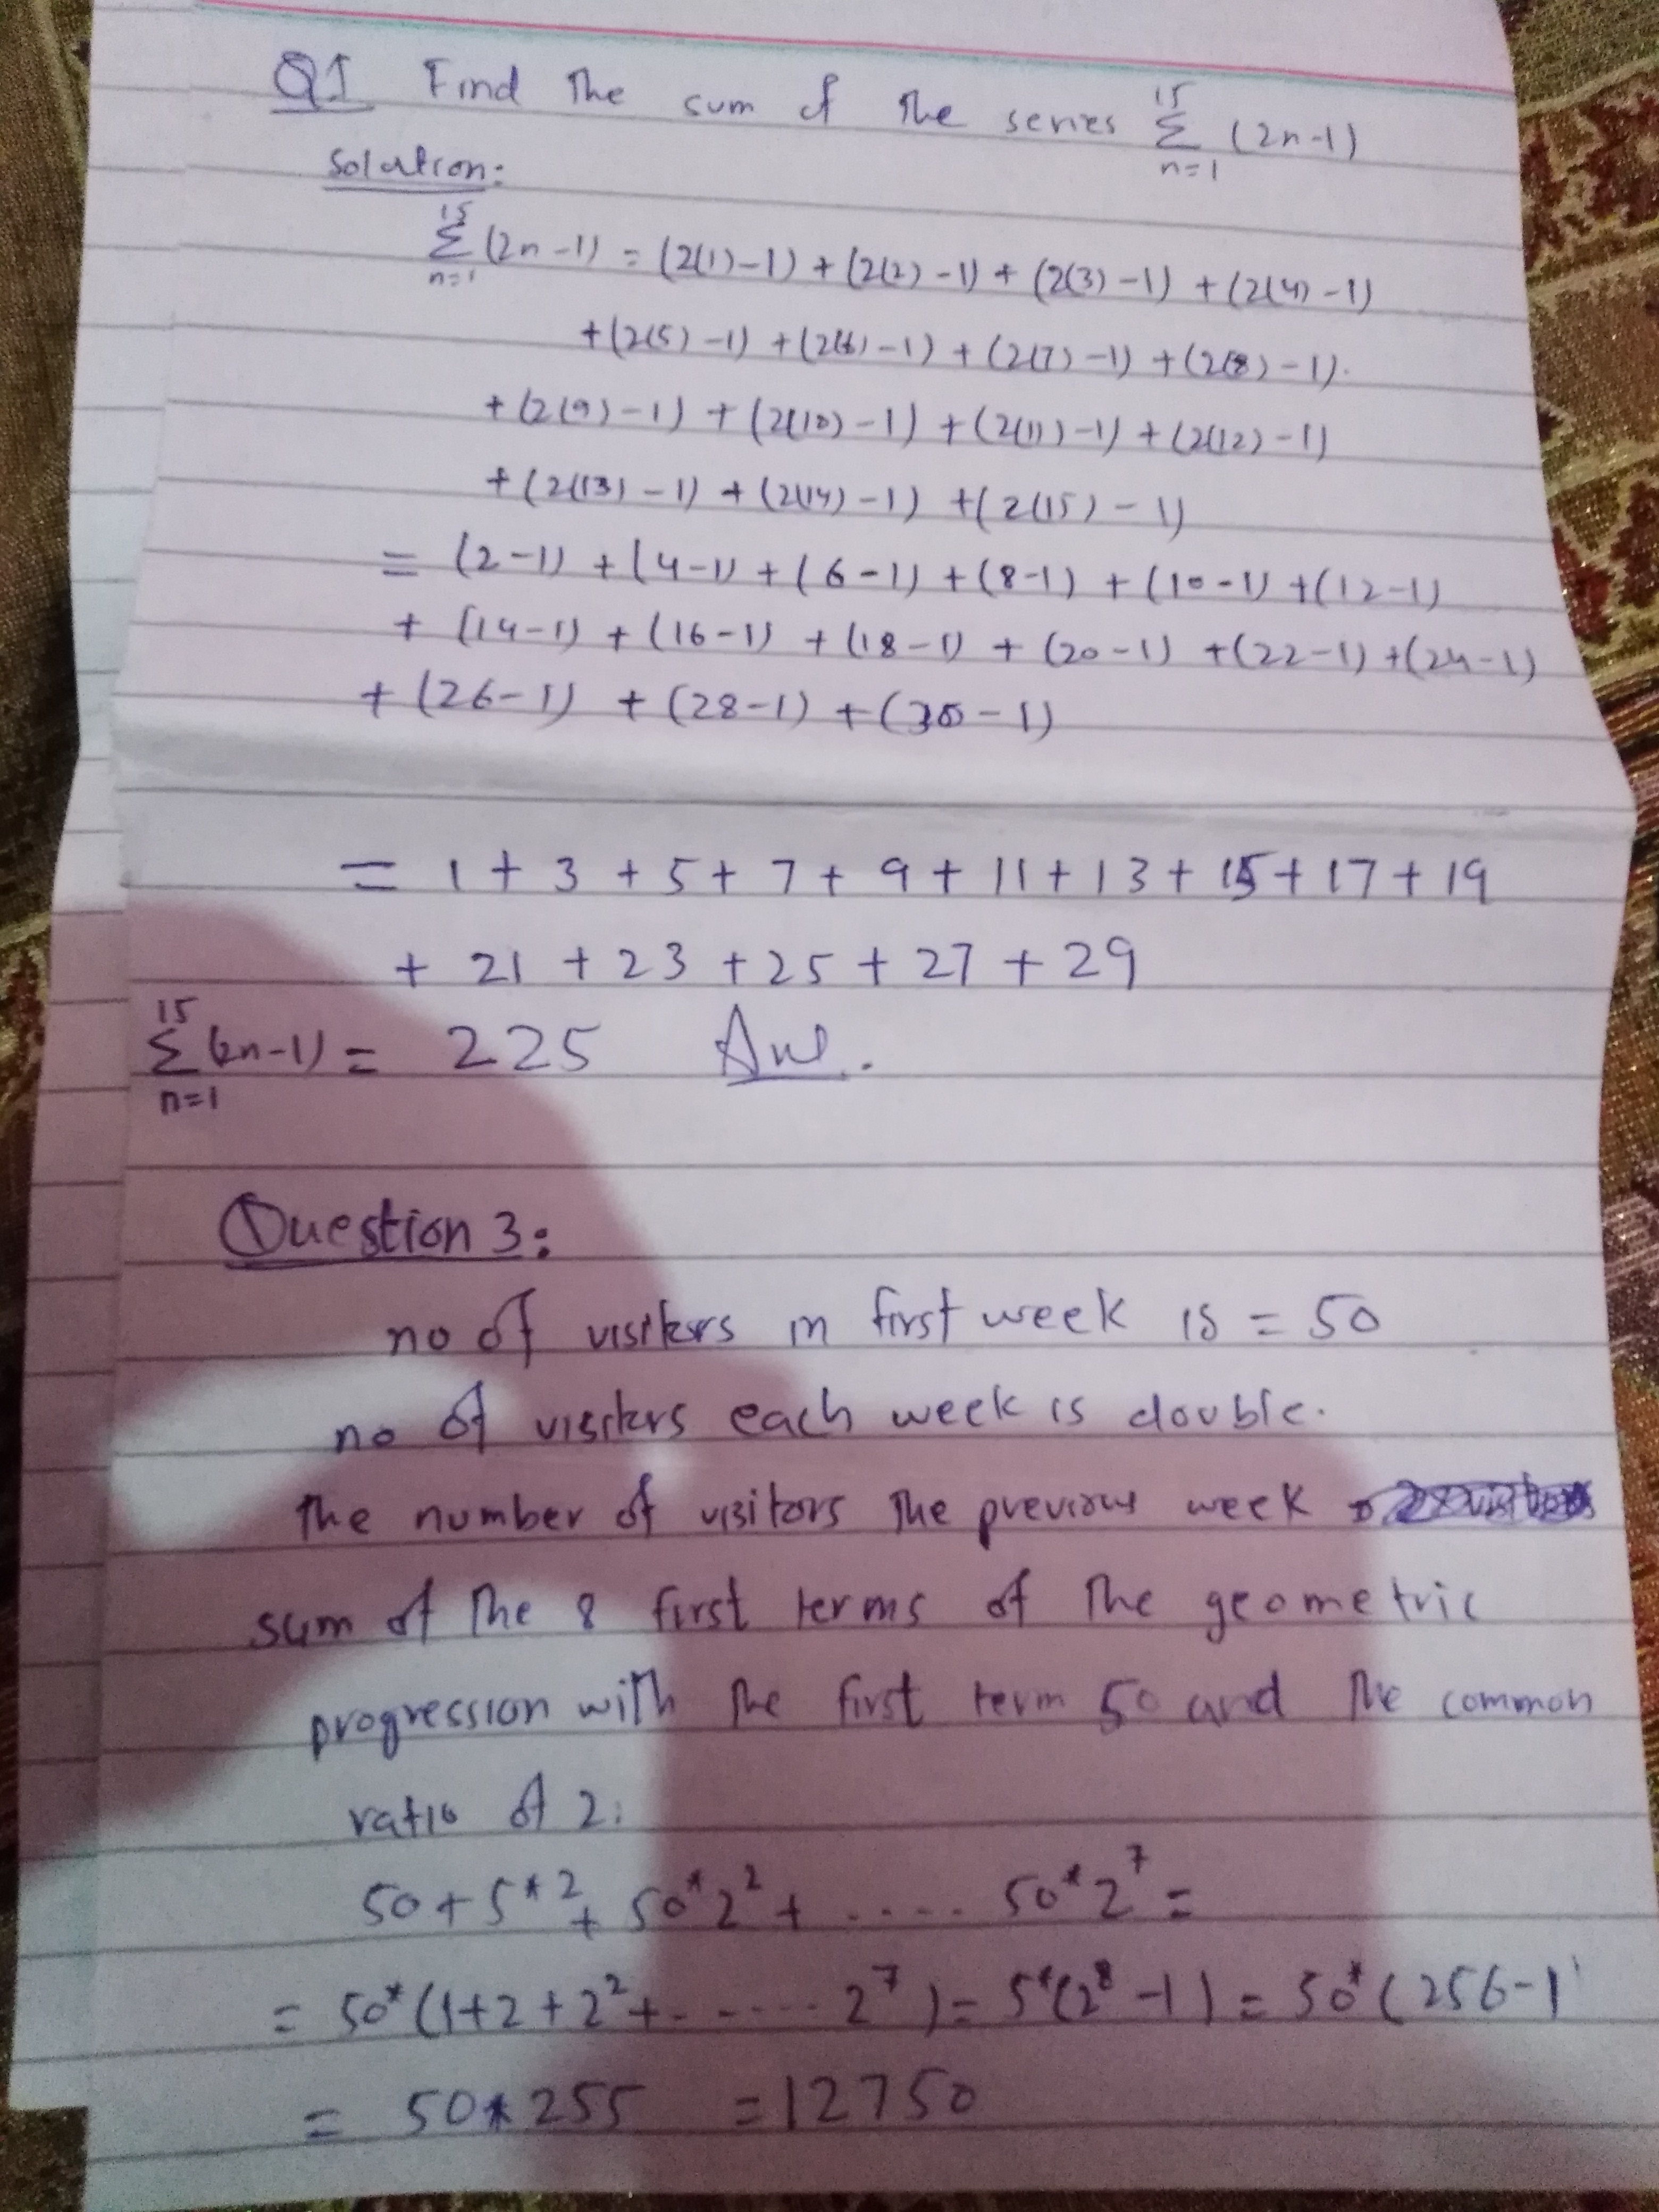 Q1 Find the sum of the series 15 Σ n=1 (2n-1)
Solution:
15 Σ n=1 (2n-1) = (2(1)-1) + (2(2)-1) + (2(3)-1) + (2(4)-1)
+(2(5)-1) +(2(6)-1) + (2(7)-1) +(2(8)-1).
+(2(9)-1) + (2(10)-1) +(2(11)-1) +(2(12)-1)
+(2(13)-1) + (2(14)-1) +(2(15)-1)
= (2-1) +(4-1) +(6-1) +(8-1) + (10-1) +(12-1)
+ (14-1) + (16-1) + (18-1) + (20-1) +(22-1) +(24-1)
+ (26-1) + (28-1) +(30-1)
= 1 + 3 + 5 + 7 + 9 + 11 + 13 + 15 + 17 + 19
+ 21 + 23 + 25 + 27 + 29
15 Σ n=1 (2n-1) = 225 Ans.
Question 3:
no of visitors in first week is = 50
no of visitors each week is double.
the number of visitors the previous week
sum of the 8 first terms of the geometric
progression with the first term 50 and the common
ratio of 2:
50 + 5*2 + 50*2² + .... 50*2⁷ =
= 50*(1+2+2²+ ...... 2⁷) = 5*(2⁸-1) = 50*(256-1)
= 50*255 = 12750